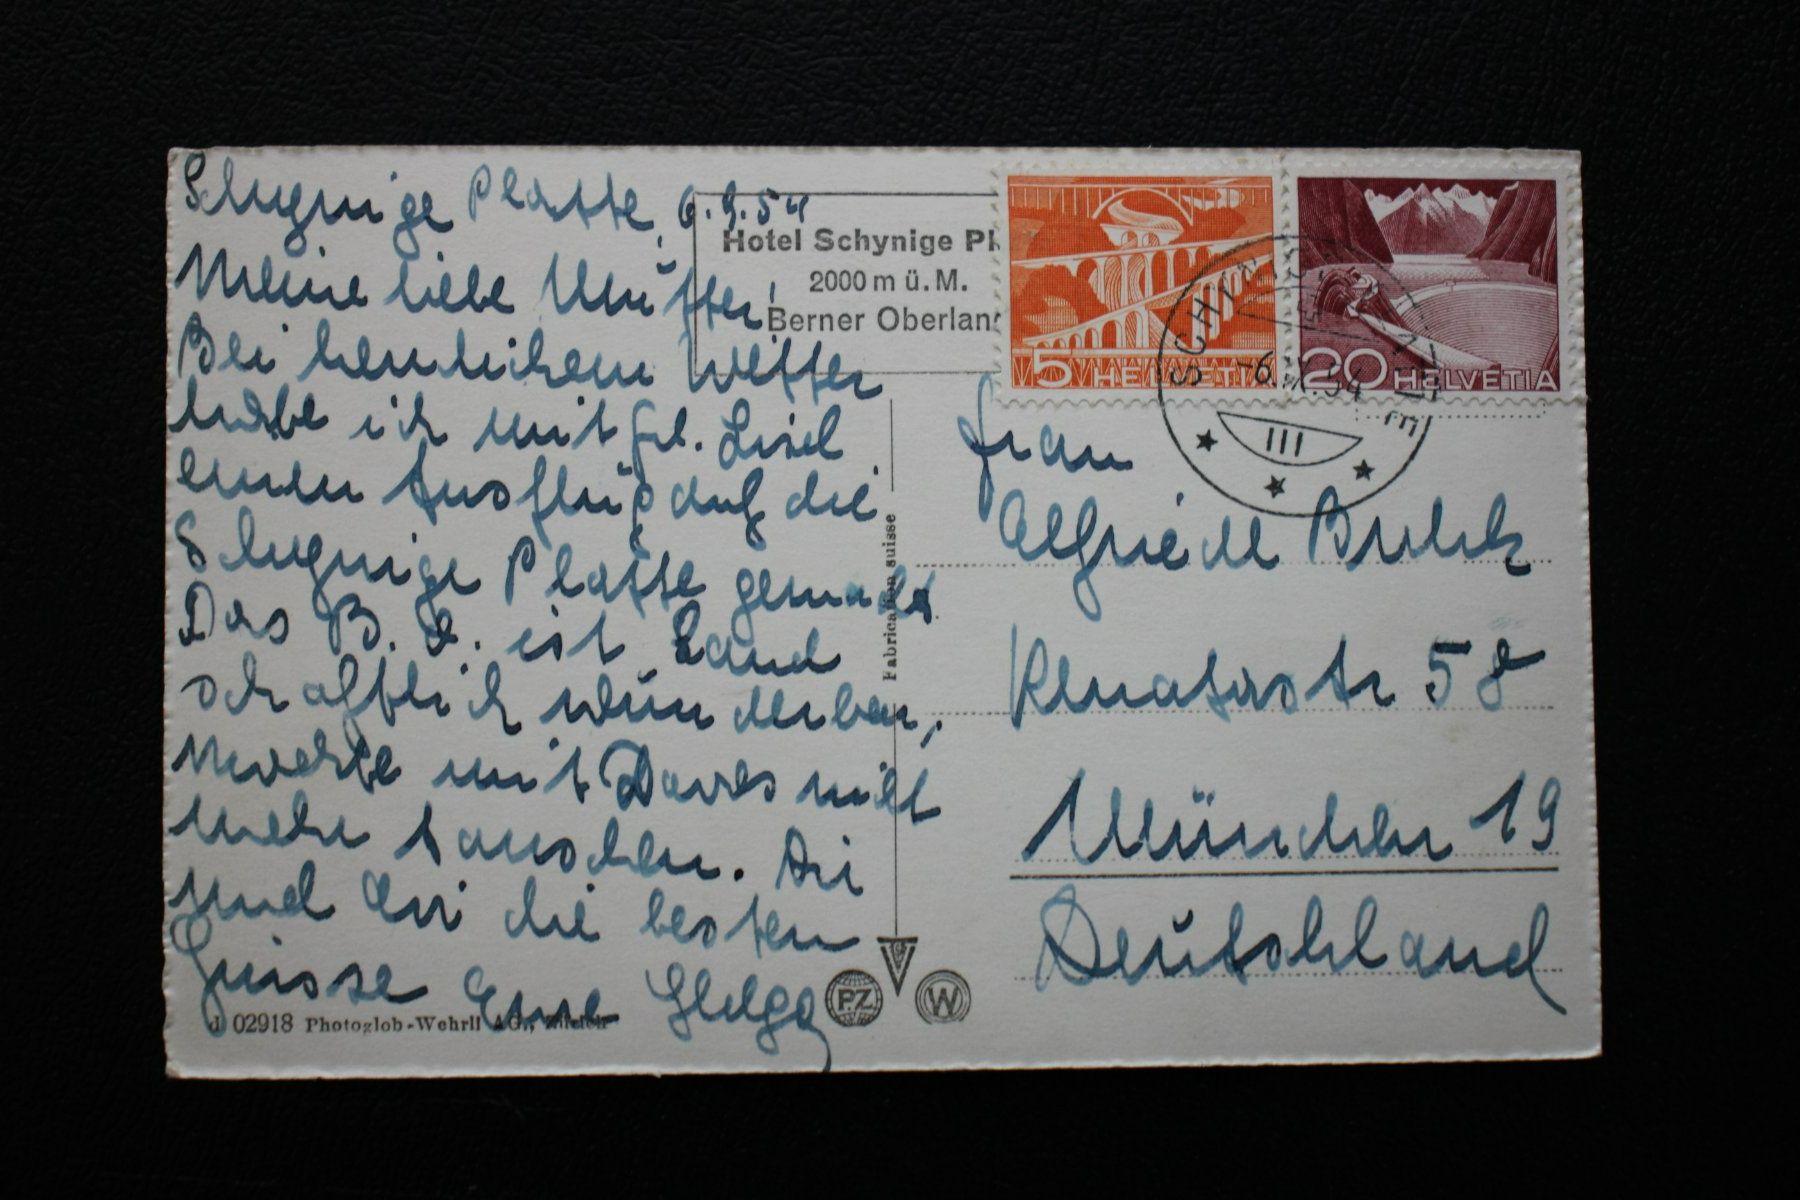 Schynige Platte, 6.9.54
Meine liebe Mutti,
Bei herrlichem Wetter
habe ich mit Frl. Lisel
einen Ausflug auf die
Schynige Platte gemacht
Das B. O. ist Land
schaftlich wunderbar,
moechte mit Davos nicht
mehr tauschen. Dir
und Evi die besten
Grüsse Eure Helga
J 02918 Photoglob-Wehrli AG., Zürich
Hotel Schynige Pl
2000 m ü. M.
Berner Oberlan
5 HELVETIA
20 HELVETIA
SCHYNIGE PLATTE
-6. 54
III
Fabrication suisse
P.Z.
W
Frau
Renatastr 58
München 19
Deutschland